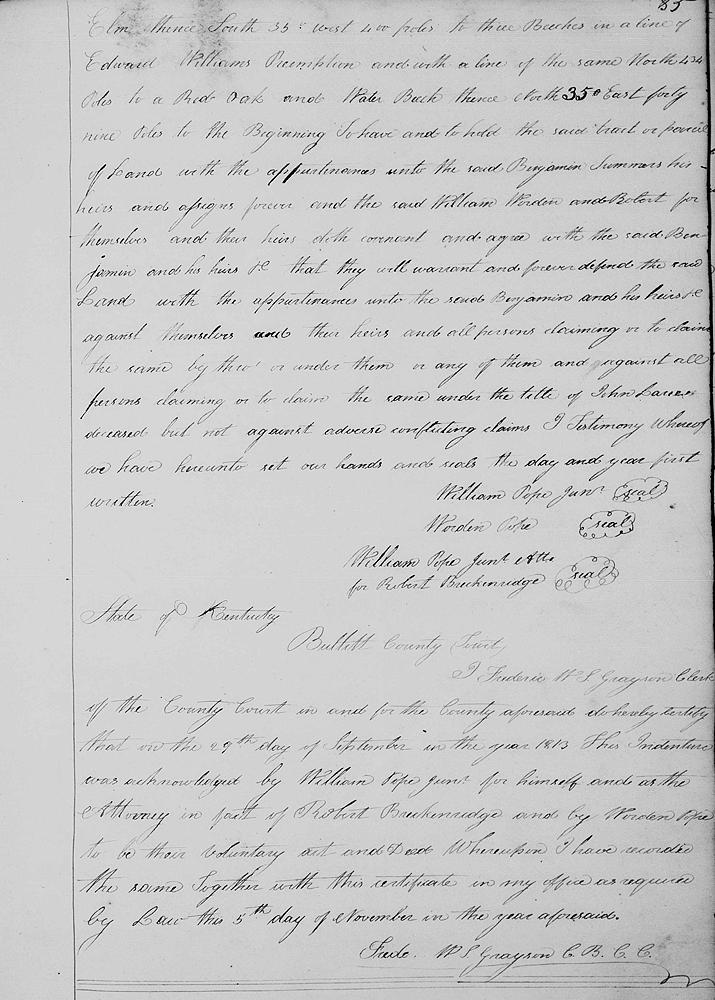 85
Elm thence South 35° west 400 poles to three Beeches in a line of
Edward Williams Preemption and with a line of the same North 434
Poles to a Red Oak and Water Beech thence North 35° East forty
nine Poles to the Beginning To have and to hold the said tract or parcel
of Land with the appurtenances unto the said Benjamin Summers his
heirs and assigns forever and the said William Worden and Robert for
themselves and their heirs doth covenant and agree with the said Ben-
jamin and his heirs &c that they will warrant and forever defend the said
Land with the appurtenances unto the said Benjamin and his heirs &c
against themselves and their heirs and all persons claiming or to claim
the same by thro' or under them or any of them and against all
persons claiming or to claim the same under the title of John
deceased but not against adverse conflicting claims I Testimony Whereof
we have hereunto set our hands and seals the day and year first
written.
William Pope Junr seal
Worden Pope seal
William Pope Junr Atto
for Robert Breckenridge seal
State of Kentucky
Bullitt County Court,
I Frederic W S Grayson Clerk
of the County Court in and for the County aforesaid do hereby certify
that on the 29th day of September in the year 1813 This Indenture
was acknowledged by William Pope Junr for himself and as the
Attorney in fact of Robert Breckenridge and by Worden Pope
to be their voluntary act and Deed Whereupon I have recorded
the same Together with this certificate in my office as required
by Law this 5th day of November in the year aforesaid.
Frede. W S Grayson C. B. C. C.